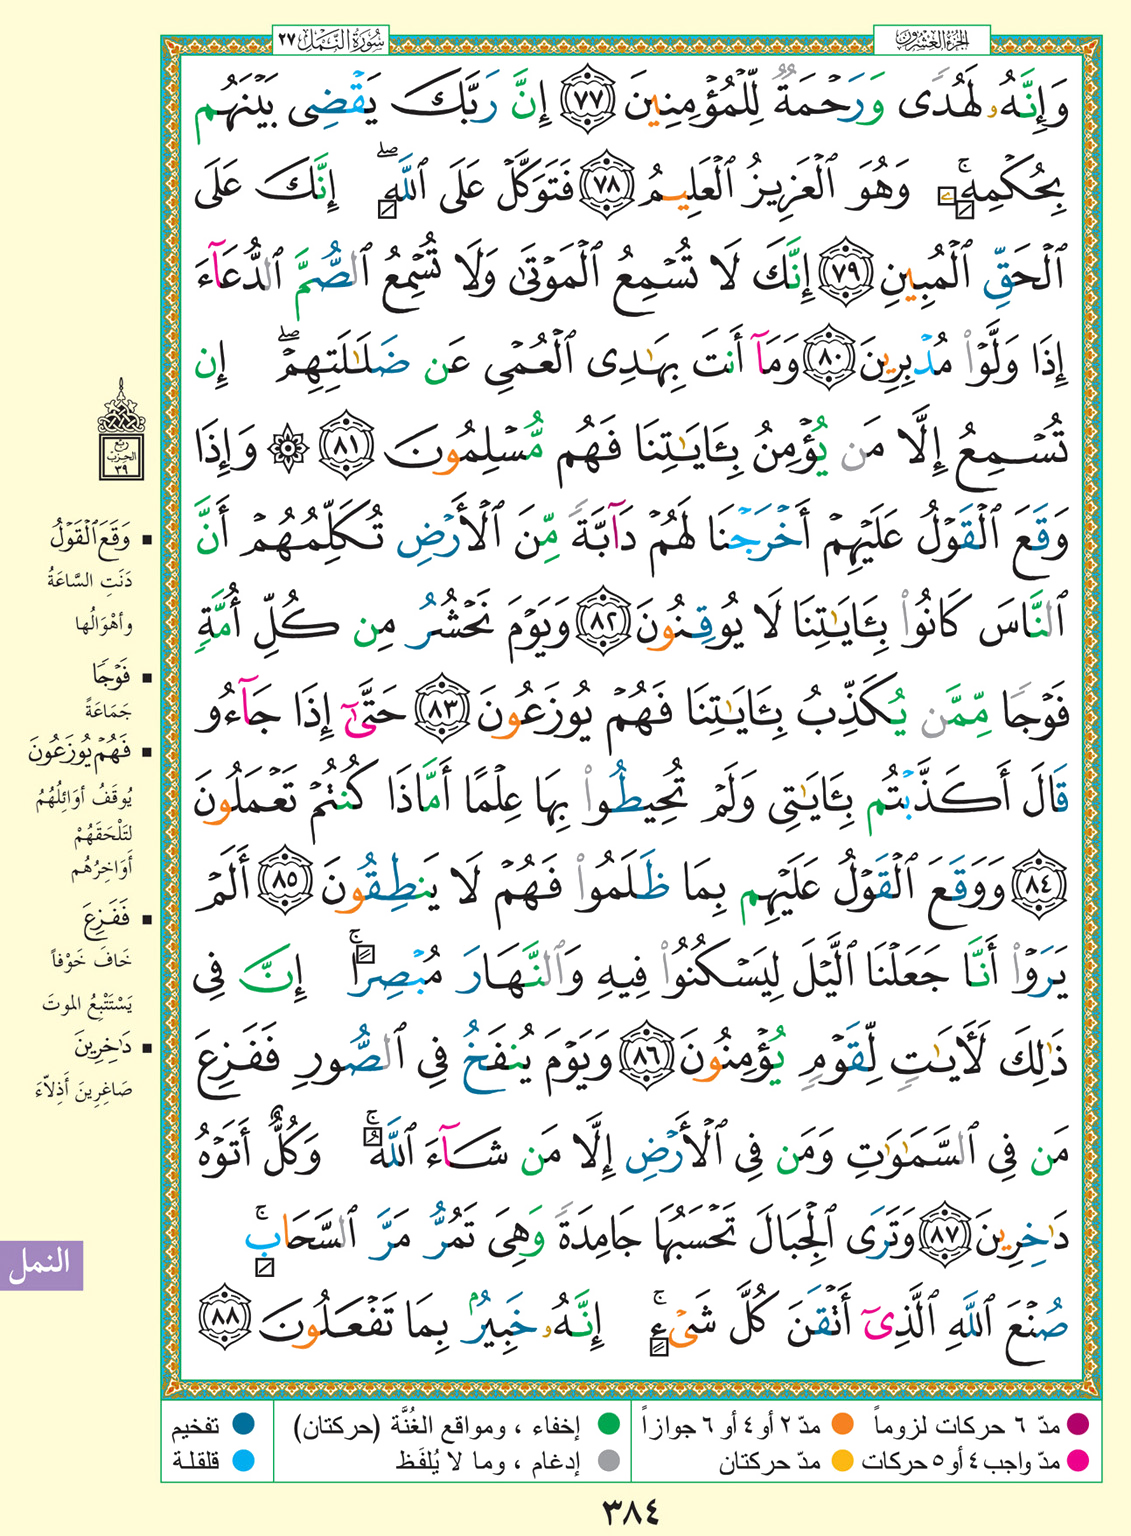 الجزء العشرون
سورة النمل ٢٧
وَإِنَّهُۥ لَهُدًى وَرَحْمَةٌ لِّلْمُؤْمِنِينَ ٧٧ إِنَّ رَبَّكَ يَقْضِى بَيْنَهُم
بِحُكْمِهِۦۚ وَهُوَ ٱلْعَزِيزُ ٱلْعَلِيمُ ٧٨ فَتَوَكَّلْ عَلَى ٱللَّهِۖ إِنَّكَ عَلَى
ٱلْحَقِّ ٱلْمُبِينِ ٧٩ إِنَّكَ لَا تُسْمِعُ ٱلْمَوْتَىٰ وَلَا تُسْمِعُ ٱلصُّمَّ ٱلدُّعَآءَ
إِذَا وَلَّوْا۟ مُدْبِرِينَ ٨٠ وَمَآ أَنتَ بِهَـٰدِى ٱلْعُمْىِ عَن ضَلَـٰلَتِهِمْۖ إِن
تُسْمِعُ إِلَّا مَن يُؤْمِنُ بِـَٔايَـٰتِنَا فَهُم مُّسْلِمُونَ ٨١ ۞ وَإِذَا
وَقَعَ ٱلْقَوْلُ عَلَيْهِمْ أَخْرَجْنَا لَهُمْ دَآبَّةً مِّنَ ٱلْأَرْضِ تُكَلِّمُهُمْ أَنَّ
ٱلنَّاسَ كَانُوا۟ بِـَٔايَـٰتِنَا لَا يُوقِنُونَ ٨٢ وَيَوْمَ نَحْشُرُ مِن كُلِّ أُمَّةٍ
فَوْجًا مِّمَّن يُكَذِّبُ بِـَٔايَـٰتِنَا فَهُمْ يُوزَعُونَ ٨٣ حَتَّىٰٓ إِذَا جَآءُو
قَالَ أَكَذَّبْتُم بِـَٔايَـٰتِى وَلَمْ تُحِيطُوا۟ بِهَا عِلْمًا أَمَّاذَا كُنتُمْ تَعْمَلُونَ
٨٤ وَوَقَعَ ٱلْقَوْلُ عَلَيْهِم بِمَا ظَلَمُوا۟ فَهُمْ لَا يَنطِقُونَ ٨٥ أَلَمْ
يَرَوْا۟ أَنَّا جَعَلْنَا ٱلَّيْلَ لِيَسْكُنُوا۟ فِيهِ وَٱلنَّهَارَ مُبْصِرًاۚ إِنَّ فِى
ذَٰلِكَ لَـَٔايَـٰتٍ لِّقَوْمٍ يُؤْمِنُونَ ٨٦ وَيَوْمَ يُنفَخُ فِى ٱلصُّورِ فَفَزِعَ
مَن فِى ٱلسَّمَـٰوَٰتِ وَمَن فِى ٱلْأَرْضِ إِلَّا مَن شَآءَ ٱللَّهُۚ وَكُلٌّ أَتَوْهُ
دَٰخِرِينَ ٨٧ وَتَرَى ٱلْجِبَالَ تَحْسَبُهَا جَامِدَةً وَهِىَ تَمُرُّ مَرَّ ٱلسَّحَابِۚ
صُنْعَ ٱللَّهِ ٱلَّذِىٓ أَتْقَنَ كُلَّ شَىْءٍۚ إِنَّهُۥ خَبِيرٌۢ بِمَا تَفْعَلُونَ ٨٨
ربع
الحزب
٣٩
وَقَعَ ٱلْقَوْلُ
دَنَتِ السَّاعَةُ
وأهْوَالُها
فَوْجًا
جَمَاعَةً
فَهُمْ يُوزَعُونَ
يُوقَفُ أوَائِلُهُمْ
لتَلْحَقَهُمْ
أَوَاخِرُهُم
فَفَزِعَ
خَافَ خَوْفاً
يَسْتَتْبِعُ الموتَ
دَٰخِرِينَ
صَاغِرِينَ أَذِلاّءَ
النمل
مدّ ٦ حركات لزوماً مدّ ٢ أو ٤ أو ٦ جوازاً إخفاء ، ومواقع الغُنَّة (حركتان) تفخيم
مدّ واجب ٤ أو ٥ حركات مدّ حركتان إدغام ، وما لا يُلفَظ قلقلة
٣٨٤